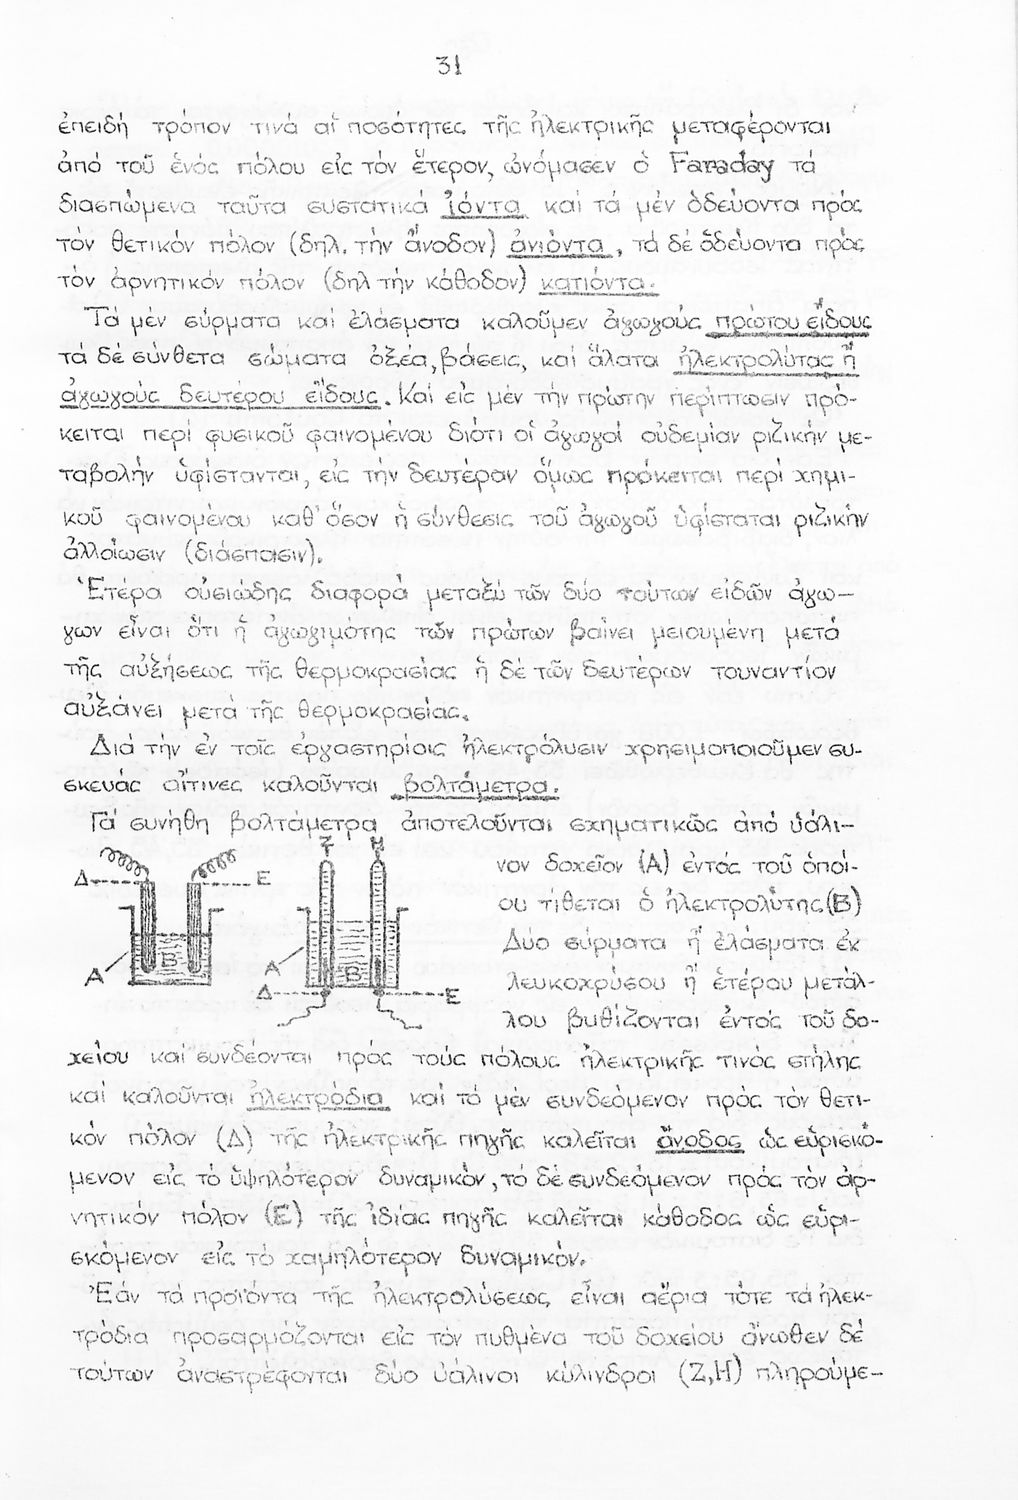 31
ἐπειδή τρόπον τινά αἱ ποσότητες τῆς ἠλεκτρικῆς μεταφέρονται
ἀπό τοῦ ἑνός πόλου εἰς τόν ἕτερον, ὠνόμασεν ὁ Faraday τά
διασπώμενα ταῦτα συστατικά ἰόντα καί τά μέν ὁδεύοντα πρός
τόν θετικόν πόλον (δηλ. τήν ἄνοδον) ἀνιόντα, τά δέ ὁδεύοντα πρός
τόν ἀρνητικόν πόλον (δηλ τήν κάθοδον) κατιόντα.
Τά μέν σύρματα καί ἐλάσματα καλοῦμεν ἀγωγούς πρώτου εἴδους
τά δέ σύνθετα σώματα ὀξέα, βάσεις, καί ἅλατα ἠλεκτρολύτας ἤ
ἀγωγούς δευτέρου εἴδους. Καί εἰς μέν τήν πρώτην περίπτωσιν πρό-
κειται περί φυσικοῦ φαινομένου διότι οἱ ἀγωγοί οὐδεμίαν ριζικήν με-
ταβολήν ὑφίστανται, εἰς τήν δευτέραν ὅμως πρόκειται περί χημι-
κοῦ φαινομένου καθ' ὅσον ἡ σύνθεσις τοῦ ἀγωγοῦ ὑφίσταται ριζικήν
ἀλλοίωσιν (διάσπασιν).
Ἑτέρα οὐσιώδης διαφορά μεταξύ τῶν δύο τούτων εἰδῶν ἀγω-
γων εἶναι ὅτι ἡ ἀγωγιμότης τῶν πρώτων βαίνει μειουμένη μετά
τῆς αὐξήσεως τῆς θερμοκρασίας ἡ δέ τῶν δευτέρων τουναντίον
αὐξάνει μετά τῆς θερμοκρασίας.
Διά τήν ἐν τοῖς ἐργαστηρίοις ἠλεκτρόλυσιν χρησιμοποιοῦμεν συ-
σκευάς αἵτινες καλοῦνται βολτάμετρα.
Τά συνήθη βολτάμετρα ἀποτελοῦνται σχηματικῶς ἀπό ὑάλι-
νον δοχεῖον (Α) ἐντός τοῦ ὁποί-
ου τίθεται ὁ ἠλεκτρολύτης (Β)
Δύο σύρματα ἤ ἐλάσματα ἐκ
λευκοχρύσου ἤ ἑτέρου μετάλ-
λου βυθίζονται ἐντός τοῦ δο-
Δ Ε
Α Β
Ζ Η
Α Β
Δ Ε
χείου καί συνδέονται πρός τούς πόλους ἠλεκτρικῆς τινός στήλης
καί καλοῦνται ἠλεκτρόδια καί τό μέν συνδεόμενον πρός τόν θετι-
κόν πόλον (Δ) τῆς ἠλεκτρικῆς πηγῆς καλεῖται ἄνοδος ὡς εὑρισκό-
μενον εἰς τό ὑψηλότερον δυναμικόν, τό δέ συνδεόμενον πρός τόν ἀρ-
νητικόν πόλον (Ε) τῆς ἰδίας πηγῆς καλεῖται κάθοδος ὡς εὑρι-
σκόμενον εἰς τό χαμηλότερον δυναμικόν.
Ἐάν τά προϊόντα τῆς ἠλεκτρολύσεως εἶναι αέρια τότε τά ἠλεκ-
τρόδια προσαρμόζονται εἰς τόν πυθμένα τοῦ δοχείου ἄνωθεν δέ
τούτων ἀναστρέφονται δύο ὑάλινοι κύλινδροι (Ζ,Η) πληρούμε-